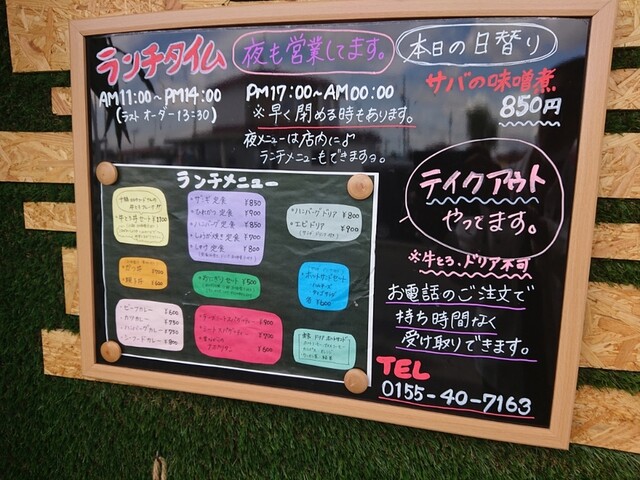 ランチタイム
AM11:00～PM14:00
(ラストオーダー13:30)
夜も営業してます。
PM17:00～AM00:00
※早く閉める時もあります。
夜メニューは店内に♪
ランチメニューもできますョ。
本日の日替り
サバの味噌煮
850円
テイクアウト
やってます。
※牛とろ、ドリア不可
お電話のご注文で
持ち時間なく
受け取りできます。
TEL
0155-40-7163
ランチメニュー
牛とろ丼セット
ザンギ定食 ¥850
ひれかつ定食 ¥900
ハンバーグ定食 ¥850
しょうが焼き定食 ¥900
定食 ¥800
ハンバーグドリア ¥800
エビドリア ¥900
おにぎりセット ¥500
ホットサンドセット
¥600
ビーフカレー ¥600
カツカレー
ハンバーグカレー
シーフードカレー ¥800